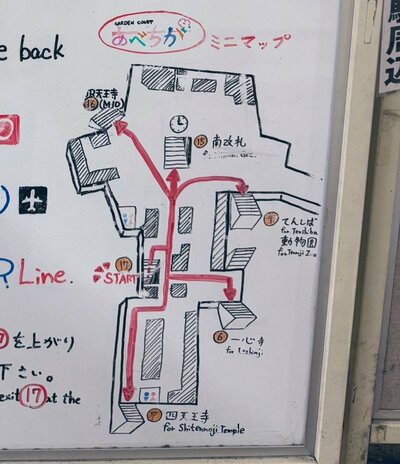 GARDEN COURT
あべちか ミニマップ
e back
四天王寺
16 (MIO)
15 南改札
てんしば
for Tenshiba
動物園
for Tennoji Zoo
Line.
17
START
6 一心寺
for Isshinji
17 を上がり
下さい。
exit 17 at the
7 四天王寺
for Shitennoji Temple
駅周辺